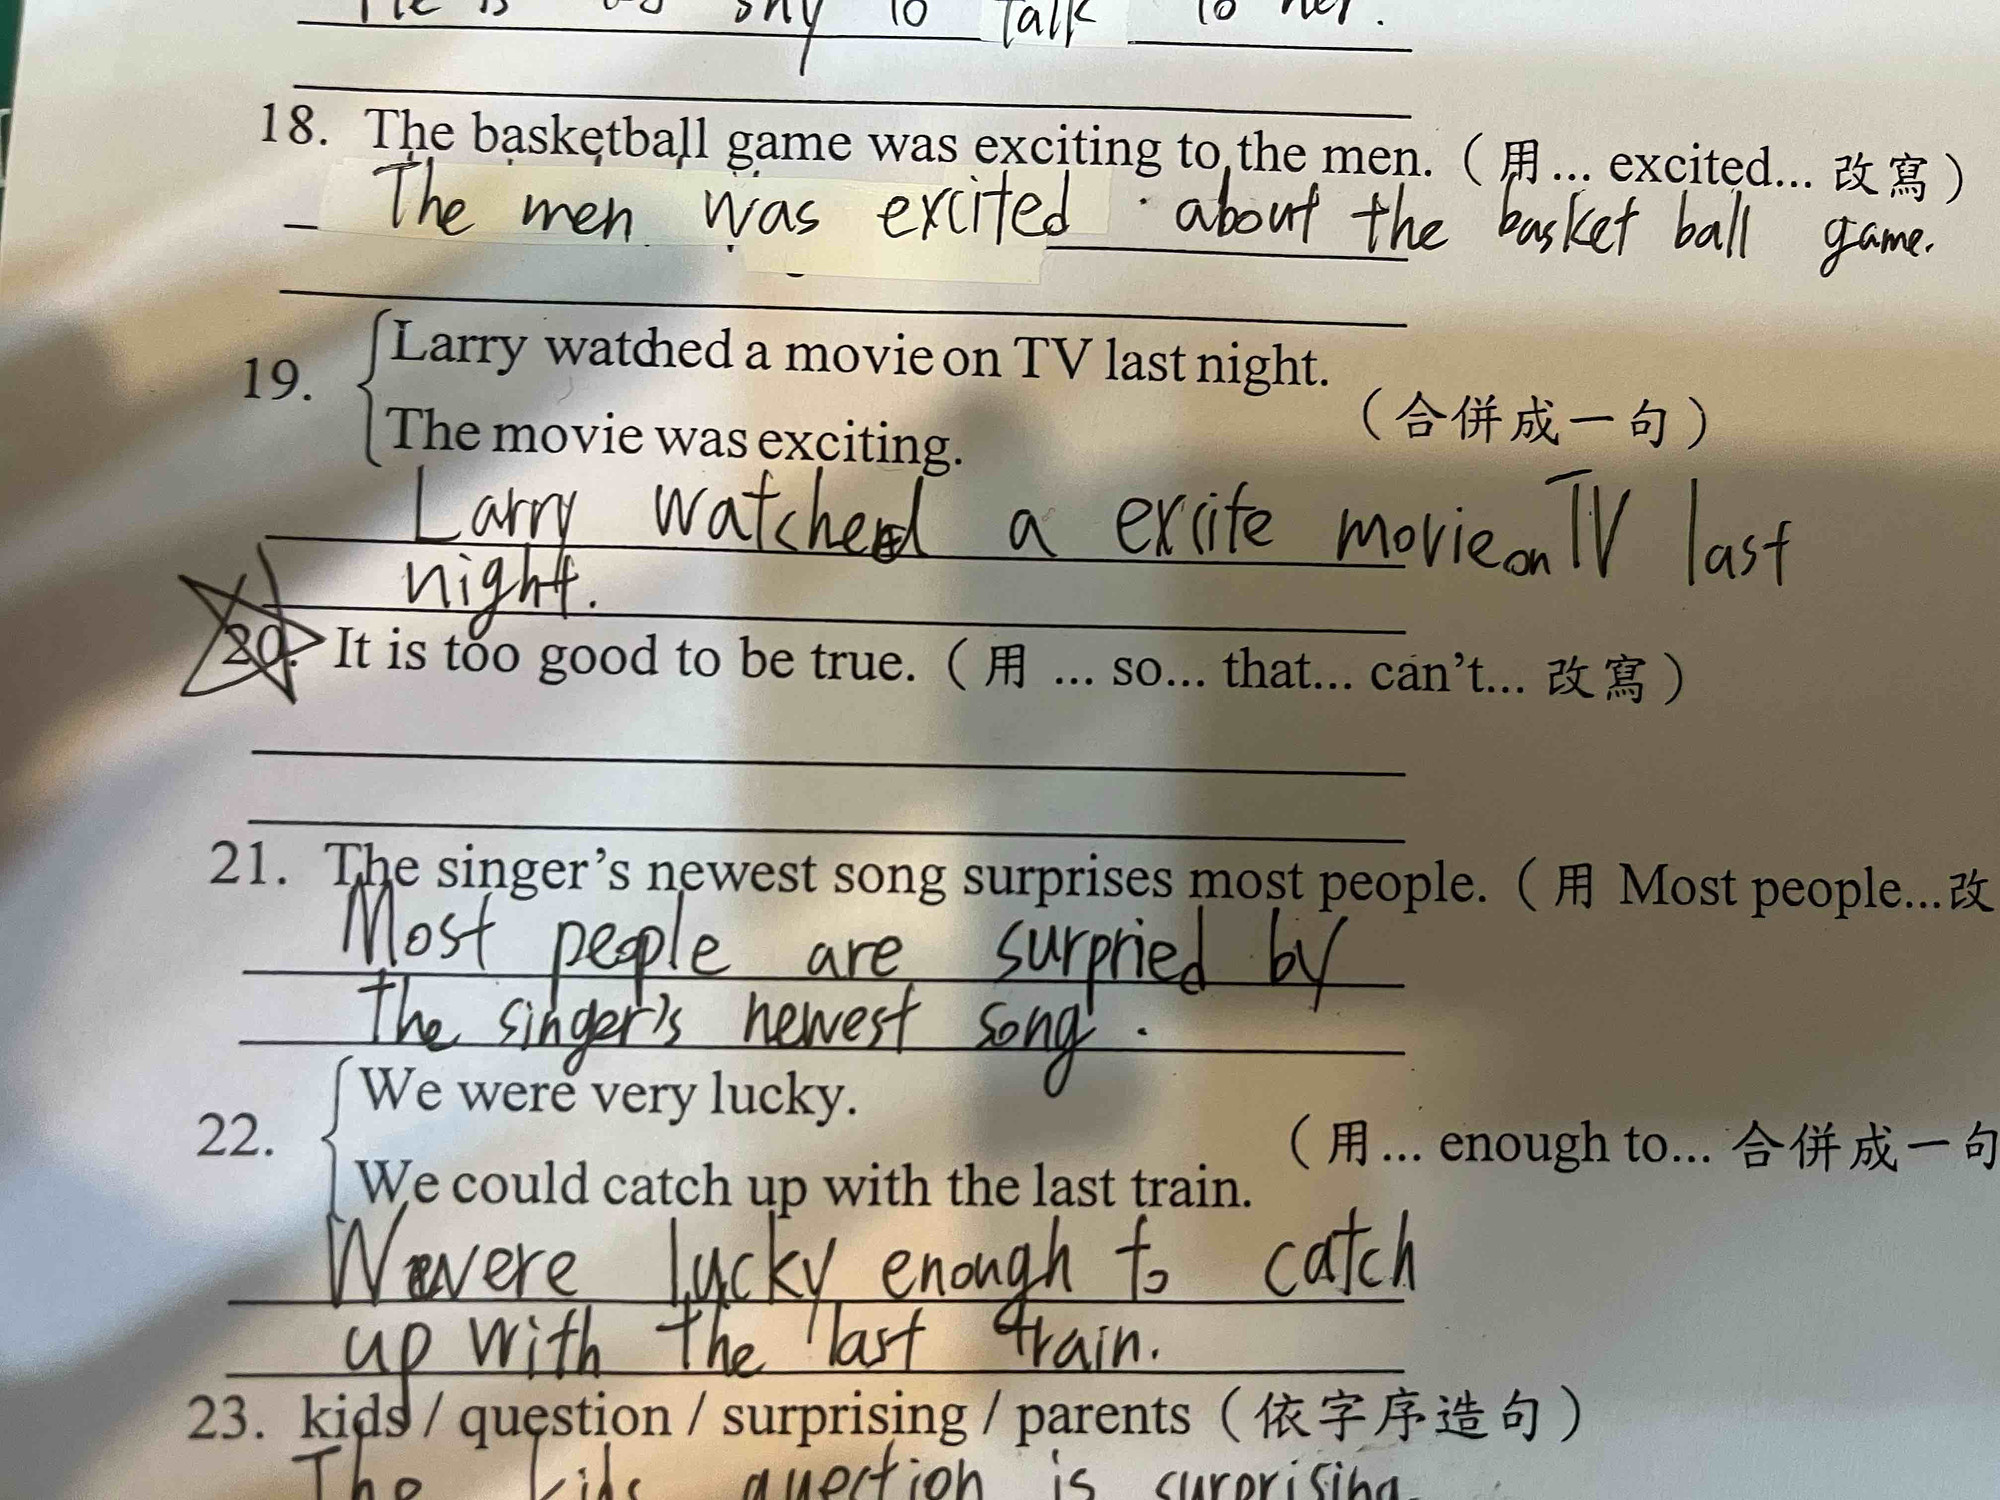 He is too shy to talk to her.
18. The basketball game was exciting to the men.（用... excited... 改寫）
The men was excited about the basket ball game.
19. Larry watched a movie on TV last night.
The movie was exciting.
（合併成一句）
Larry watched a excite movie on TV last
night.
20. It is too good to be true.（用 ... so... that... can't... 改寫）
21. The singer's newest song surprises most people.（用 Most people...改
Most people are surpried by
the singer's newest song.
22. We were very lucky.
We could catch up with the last train.
（用... enough to... 合併成一句
We were lucky enough to catch
up with the last train.
23. kids / question / surprising / parents（依字序造句）
The kids question is surprising